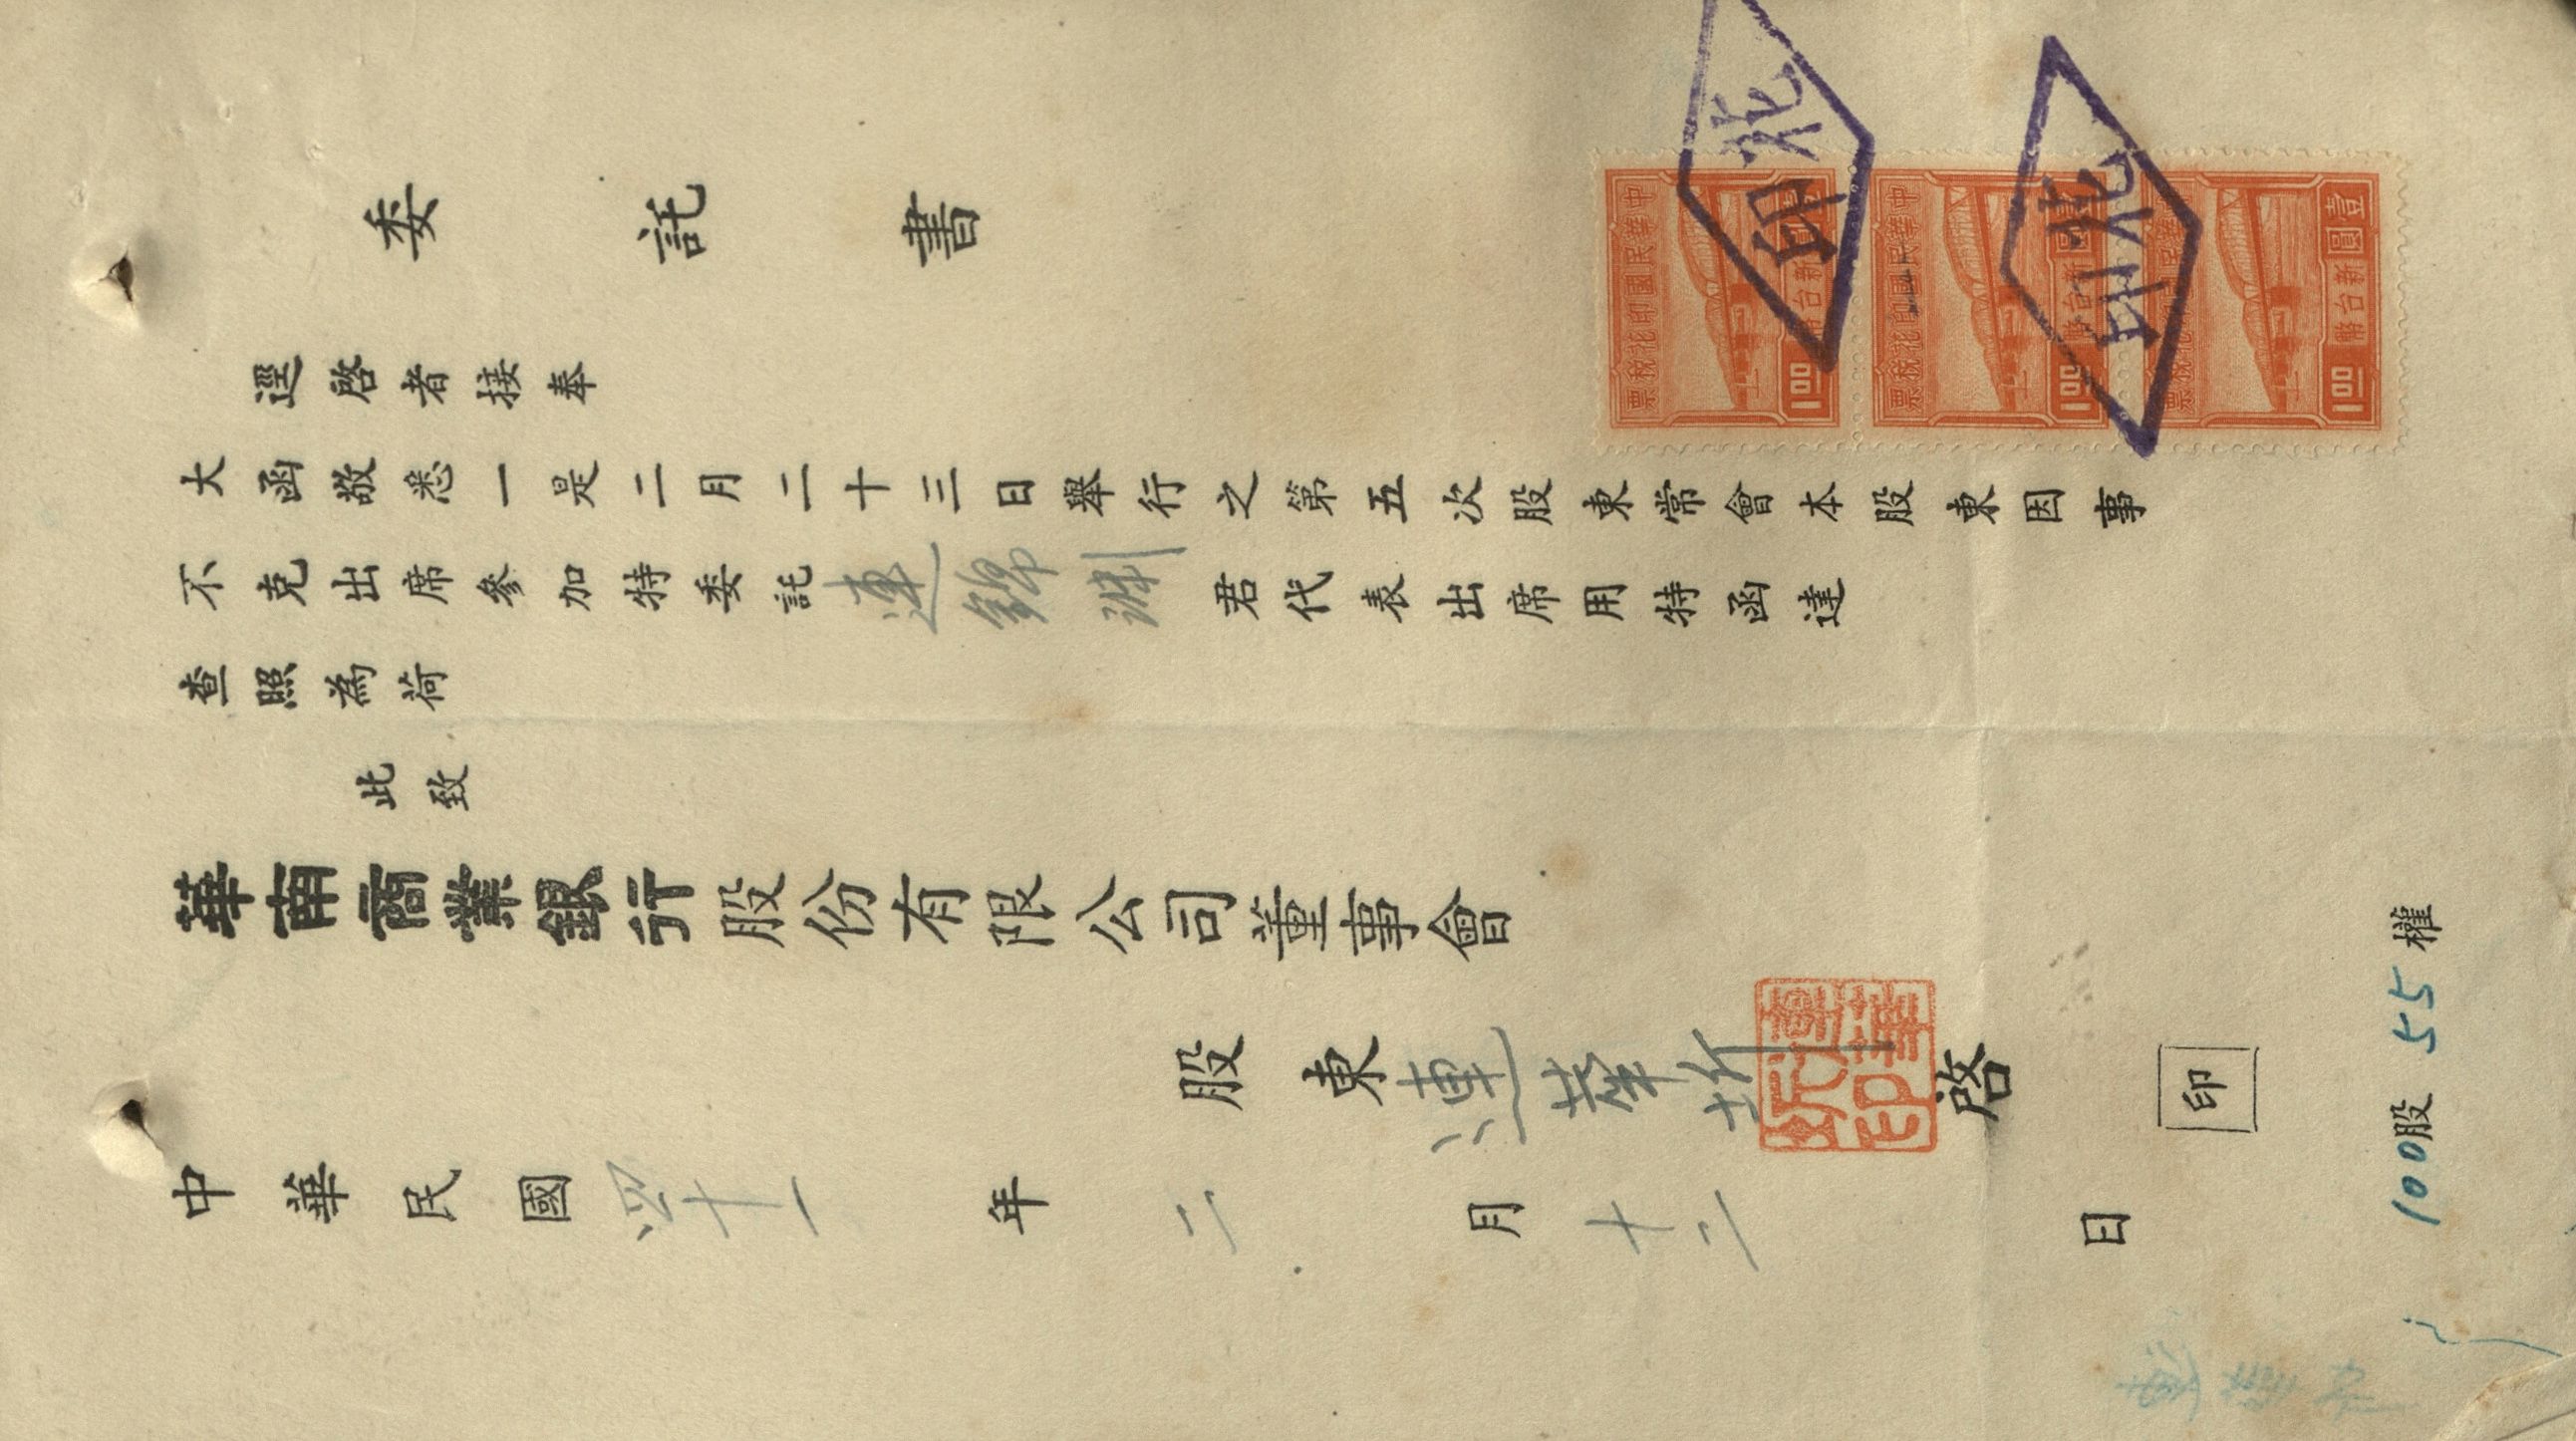 委託書
逕啓者接奉
大函敬悉一是二月二十三日舉行之第五次股東常會本股東因事
不克出席參加特委託連錦淵君代表出席用特函達
查照為荷
此致
華南商業銀行股份有限公司董事會
股東連華圻啓
印
中華民國四十一年二月十二日
100股 55權
中華民國印花稅票
壹圓新台幣 1.00
中華民國印花稅票
圓新台幣 1.00
壹圓新台幣 1.00
印花
印花
連華圻印